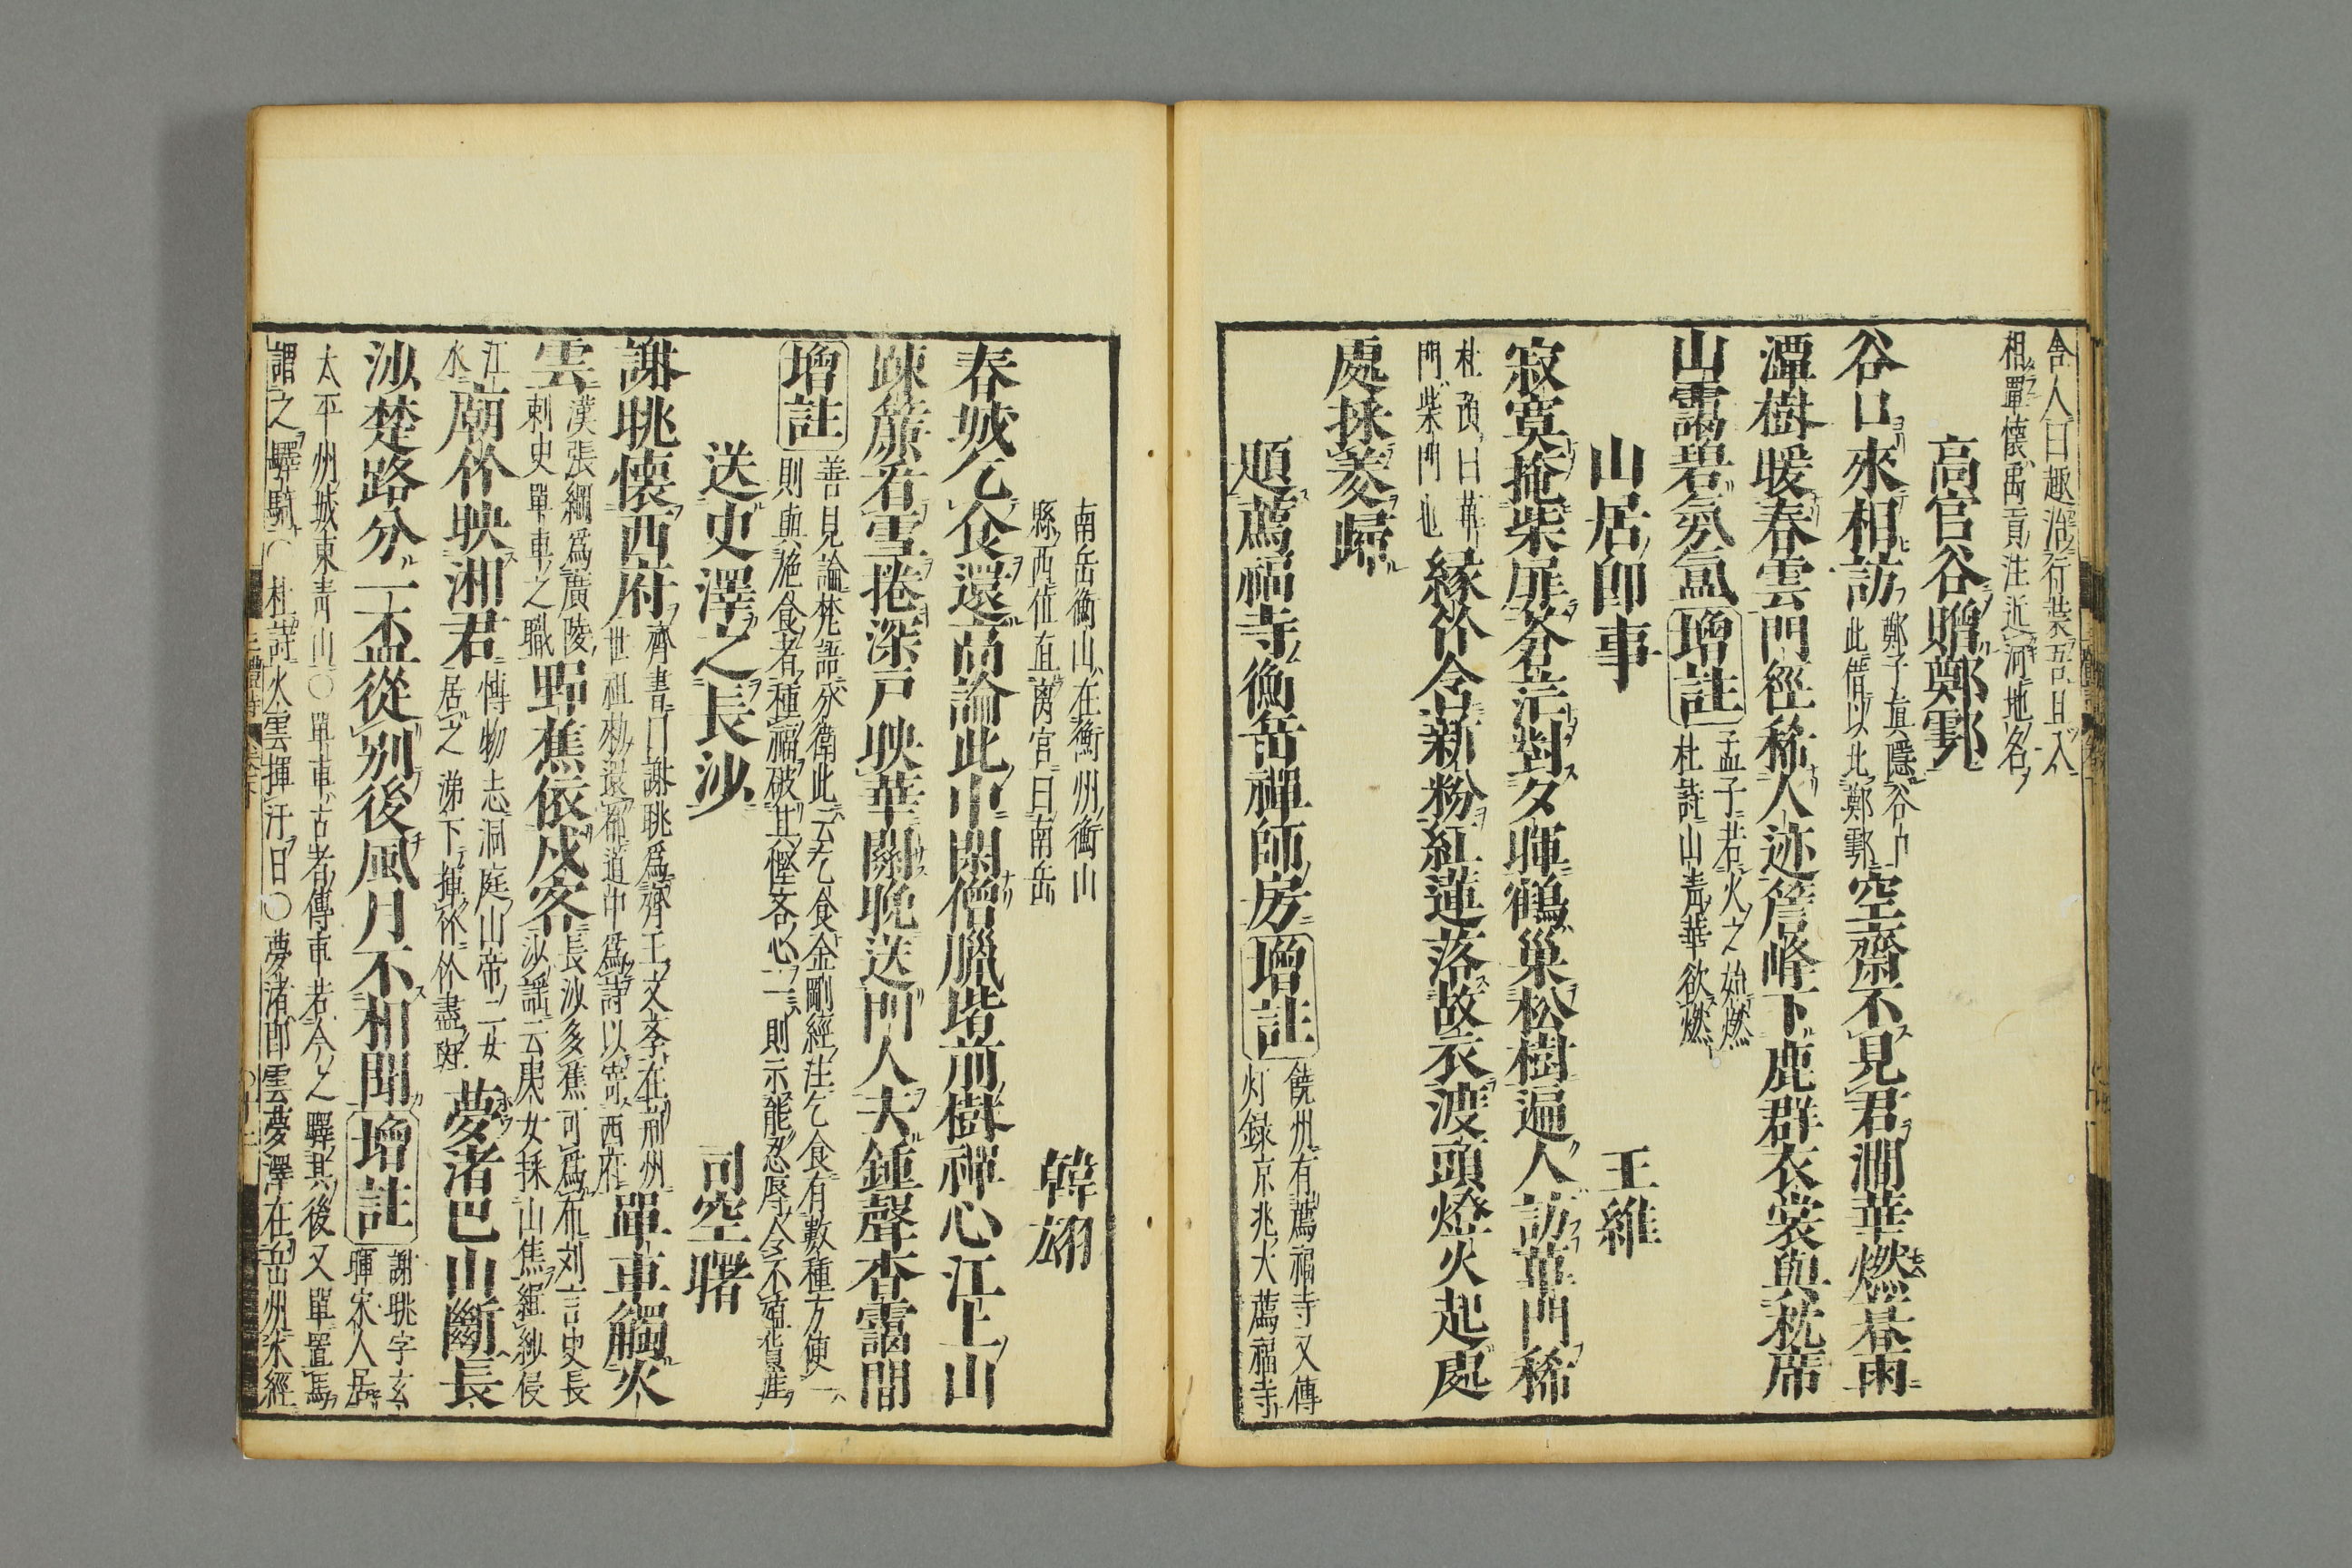 舎人曰趣治行装吾且入
相覃懐禹貢注近河地名
高官谷贈鄭鄠
谷口來相訪
鄭子眞隱谷口
此借以比鄭鄠
空齋不見君澗華燃暮雨
潭樹暖春雲門徑稀人迹簷峰下鹿群衣裳與枕席
山靄碧氛氳
增註
孟子若火之始燃
杜詩山青華欲燃
山居即事
王維
寂寞掩柴扉蒼茫對夕暉鶴巢松樹遍人訪蓽門稀
杜預曰蓽
門柴門也
緑竹含新粉紅蓮落故衣渡頭燈火起處
處採菱歸
題薦福寺衡岳禪師房
增註
饒州有薦福寺又傳
灯録京兆大薦福寺
南岳衡山在衡州衡山
縣西值直离宮曰南岳
韓翃
春城乞食還高論此中閑僧臘堦前樹禪心江上山
疎簾看雪捲深戸映華關晚送門人去鍾聲杳靄間
增註
善見論梵語分衛此云乞食金剛經注乞食有數種方便一
則與施食者種福破其慳吝心二則示能忍辱
送史澤之長沙
司空曙
謝朓懷西府
齊書門謝朓爲齊王文李在荊州
世祖勑還都道中爲詩以寄西府
單車觸火
雲
漢張綱爲廣陵
刺史單車之職
野蕉依戍客
長沙多蕉可爲布刘言史長
沙謡云夷女採山蕉緝紗侵
江
水
廟竹映湘君
博物志洞庭山帝二女
居之涕下揮竹竹盡斑
夢渚巴山斷長
沙楚路分一盃從別後風月不相聞
增註
謝朓字玄
暉宋人居
太平州城東青山○單車古者傳車若今之驛其後又單置馬
謂之驛騎○杜詩火雲揮汗日○夢渚即雲夢澤在岳州水經